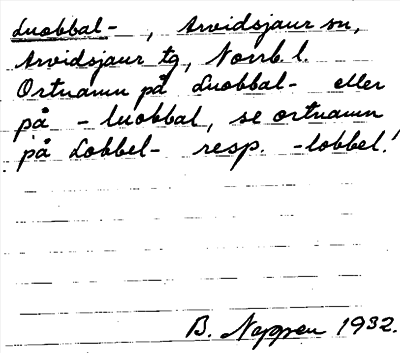 Luobbal- , Arvidsjaur sn,
Arvidsjaur tg, Norrb. l.
Ortnamn på Luobbal- eller
på -luobbal, se ortnamn
på Lobbel- resp. -lobbel!
B. 1932.